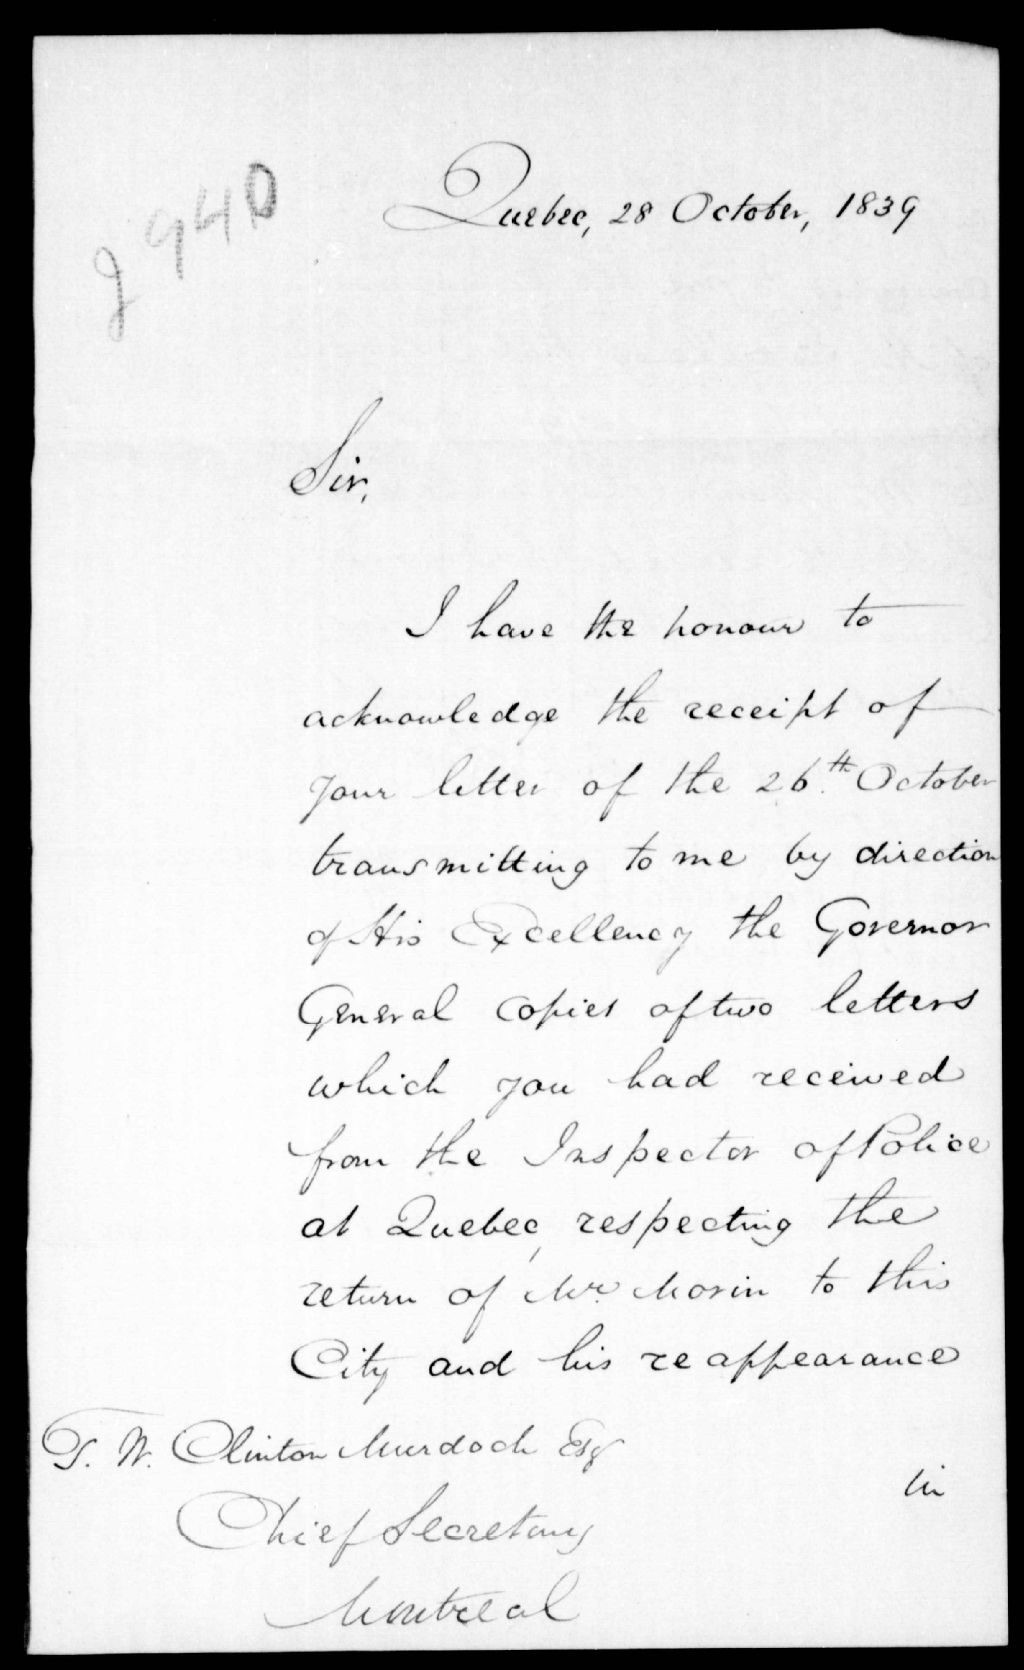 2940
Quebec, 28 October, 1839
Sir,
I have the honour to
acknowledge the receipt of
your letter of the 26th October
transmitting to me by direction
of His Excellency the Governor
General copies of two letters
which you had received
from the Inspector of Police
at Quebec, respecting the
return of Mr. Morin to this
City and his reappearance
T. W. Clinton Murdoch Esq
in
Chief Secretary
Montreal